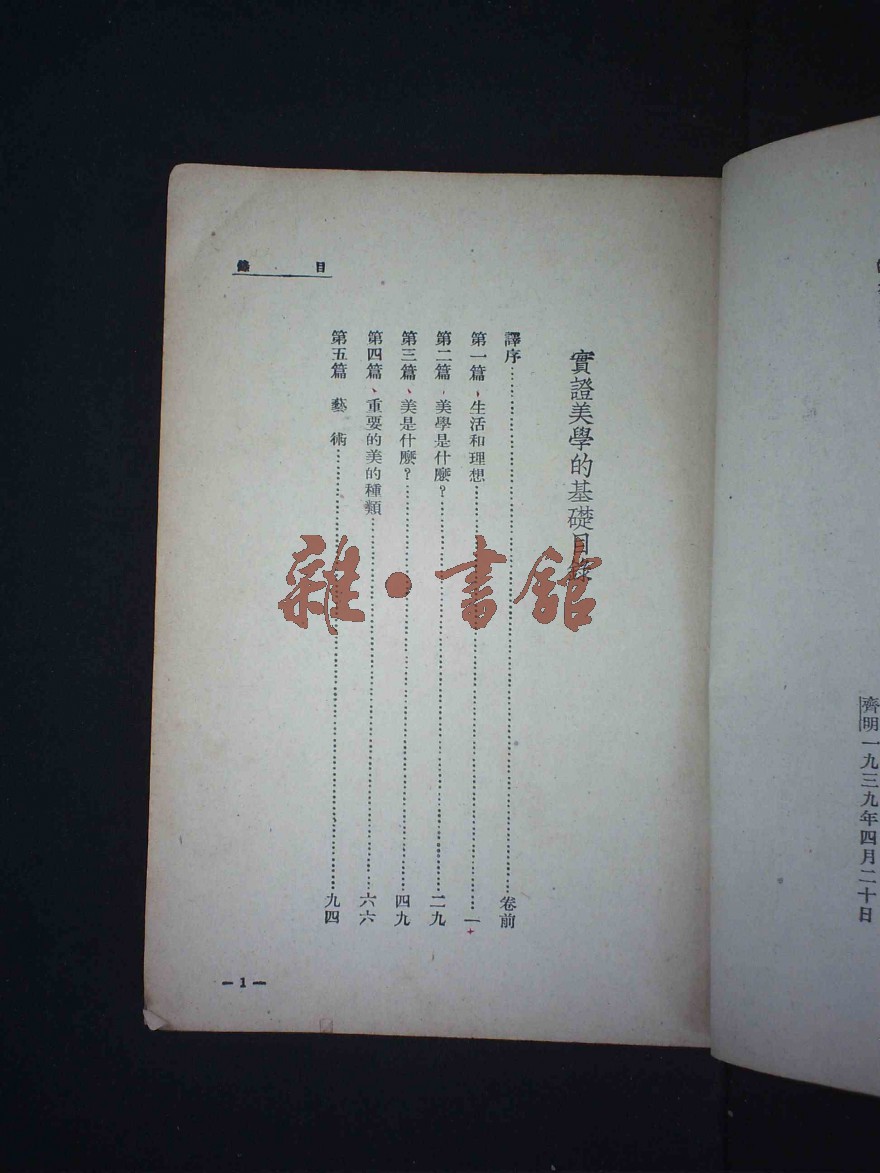 齊明一九三九年四月二十日
目錄
實證美學的基礎目錄
譯序……卷前
第一篇、生活和理想……一
第二篇、美學是什麼？……二九
第三篇、美是什麼？……四九
第四篇、重要的美的種類……六六
第五篇 藝術……九四
— 1 —
雜·書館